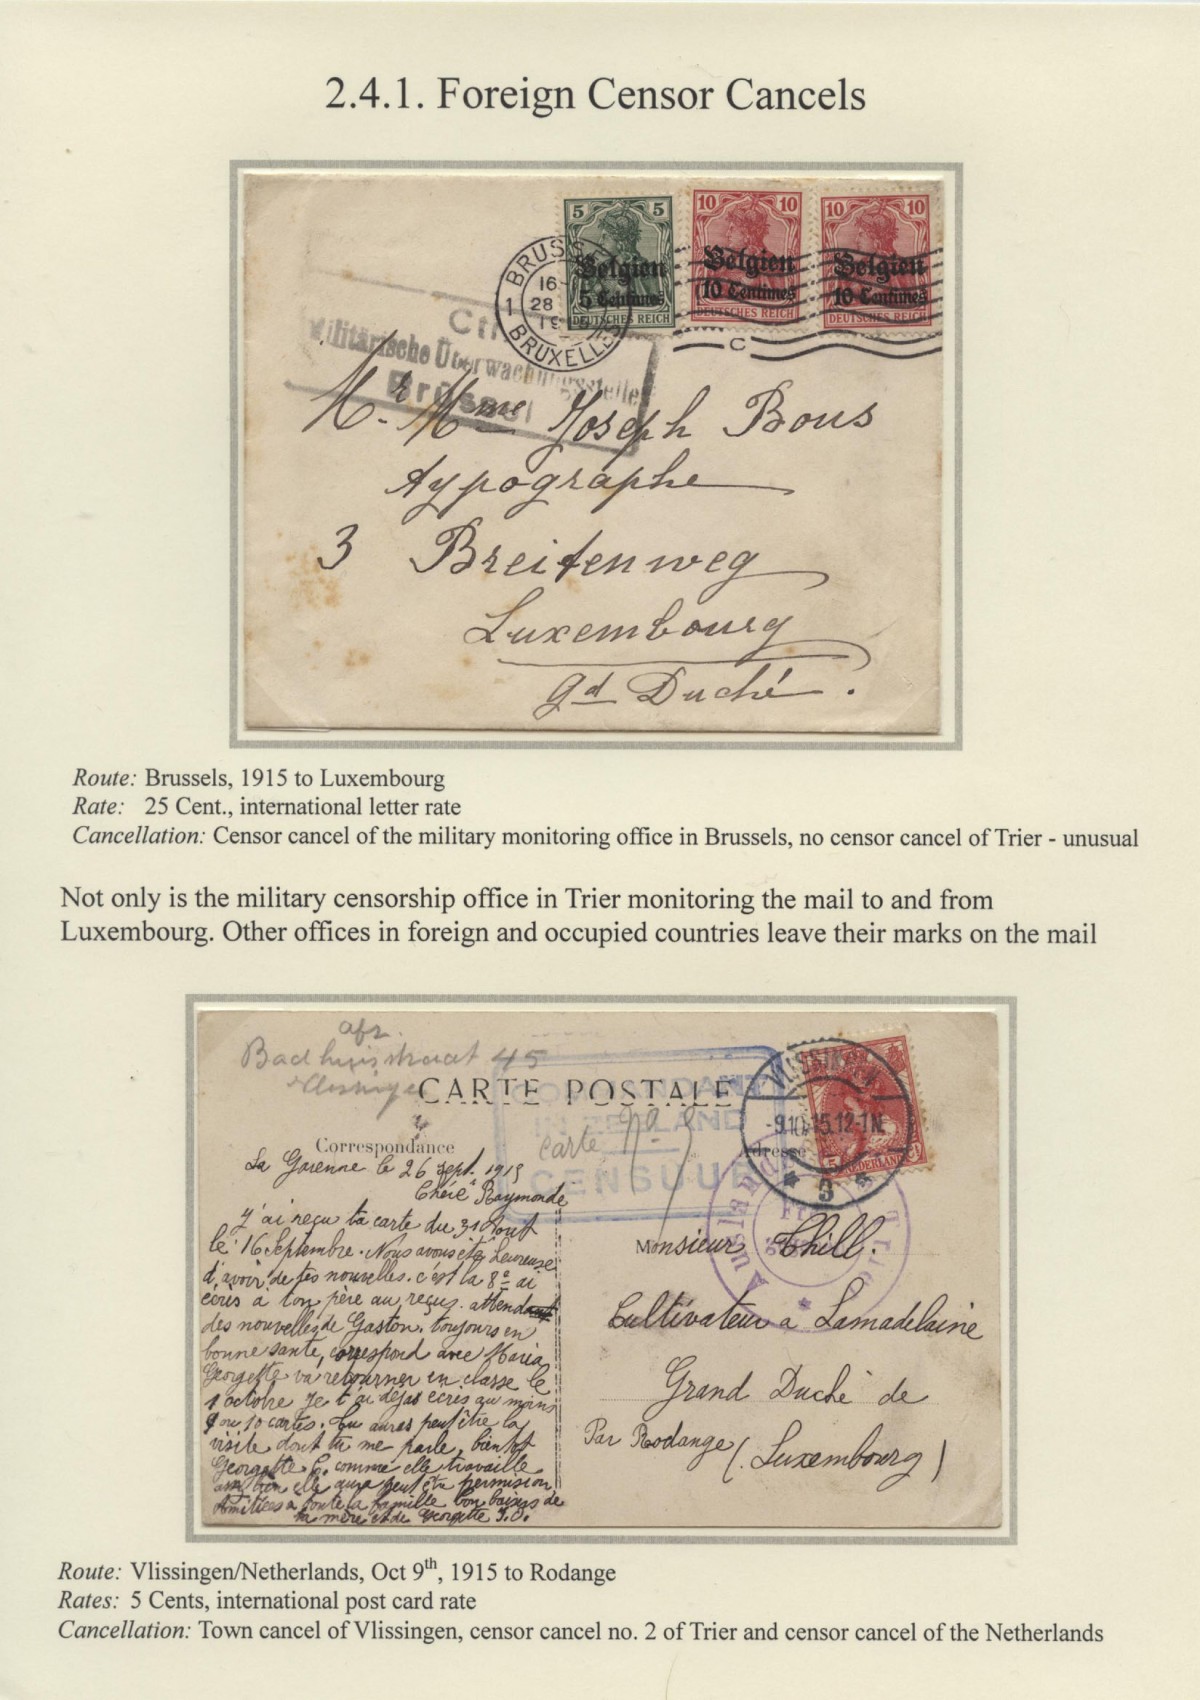 2.4.1. Foreign Censor Cancels
5 5
Belgien
5 Centimes
DEUTSCHES REICH
10 10
Belgien
10 Centimes
DEUTSCHES REICH
10 10
Belgien
10 Centimes
DEUTSCHES REICH
1 28
BRUXELLES
C
Militärische Überwachungsstelle
Brüssel
Mr Mme Joseph Bous
Typographe
3 Breitenweg
Luxembourg
gd Duché.
Route: Brussels, 1915 to Luxembourg
Rate: 25 Cent., international letter rate
Cancellation: Censor cancel of the military monitoring office in Brussels, no censor cancel of Trier - unusual
Not only is the military censorship office in Trier monitoring the mail to and from
Luxembourg. Other offices in foreign and occupied countries leave their marks on the mail
afz.
45
CARTE POSTALE
COMMANDANT
IN ZEELAND
CENSUUR
carte no 9
VLISSINGEN
-9.10.15.12-1N.
3
NEDERLAND
Auslandsstelle Trier
Correspondance
Adresse
La Garenne le 26 sept. 1915
Chère Raymonde
J'ai reçu ta carte du 31 Aout
le 16 Septembre. Nous avons été heureuse
d'avoir de tes nouvelles. c'est la 8e ai
écris à ton père au reçus. attendant
des nouvelles de Gaston, toujours en
bonne santé, correspond avec Maria
Georgette va retourner en classe le
1 octobre Je t'ai déjas écris au moins
9 ou 10 cartes. Tu auras peut être la
visite dont tu me parle, bientôt
Georgette C. comme elle travaille
bien elle aura peut être permission
Amitiées à toute la famille bon baisers de
ta mère et de Georgette
Monsieur Thill.
Cultivateur a Lamadelaine
Grand Duché de
Par Rodange (Luxembourg)
Route: Vlissingen/Netherlands, Oct 9th, 1915 to Rodange
Rates: 5 Cents, international post card rate
Cancellation: Town cancel of Vlissingen, censor cancel no. 2 of Trier and censor cancel of the Netherlands